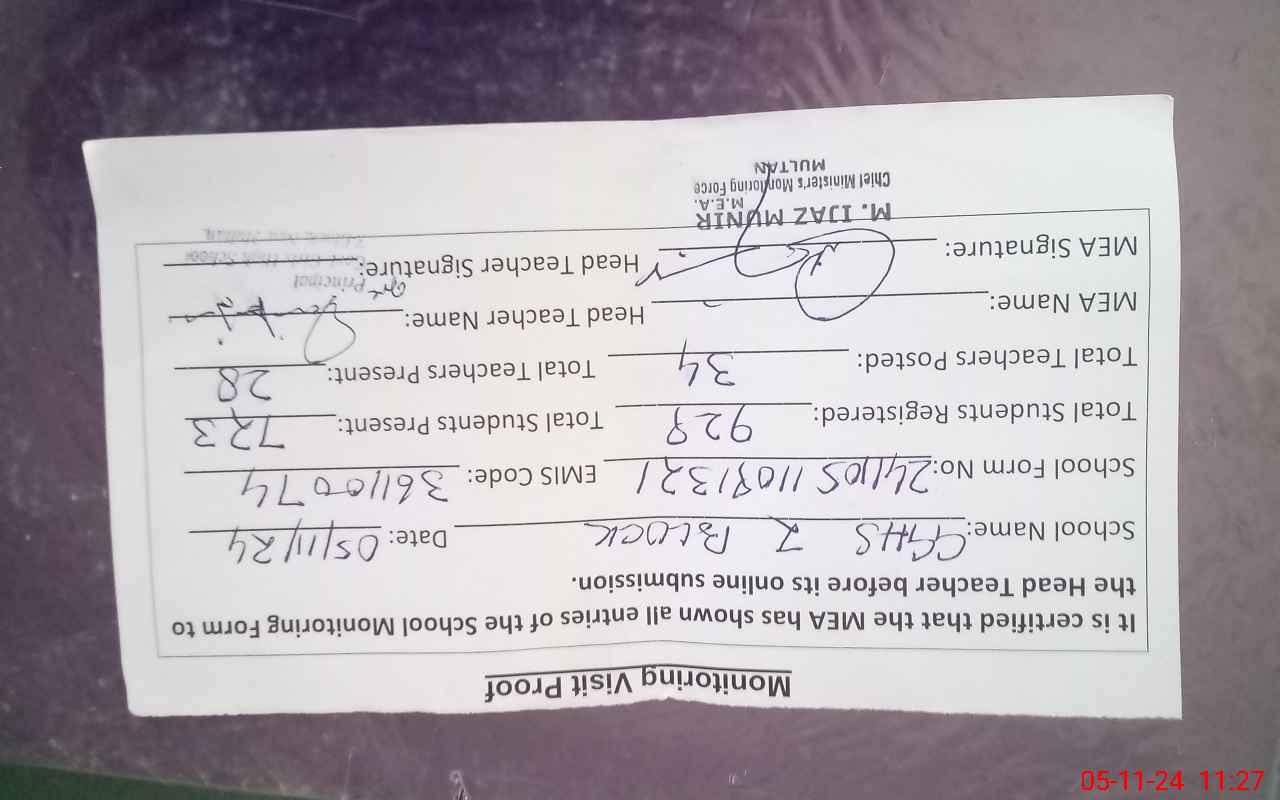 Monitoring Visit Proof
It is certified that the MEA has shown all entries of the School Monitoring Form to
the Head Teacher before its online submission.
School Name: GGHS Z BLOCK Date: 05/11/24
School Form No: 241105 11081321 EMIS Code: 36110074
Total Students Registered: 928 Total Students Present: 723
Total Teachers Posted: 34 Total Teachers Present: 28
MEA Name: Head Teacher Name:
MEA Signature: Head Teacher Signature:
Principal
M. IJAZ MUNIR
M.E.A.
Chief Minister's Monitoring Force
MULTAN
05-11-24 11:27